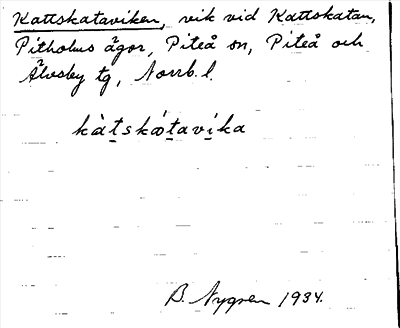 Kattskataviken, vik vid Kattskatan,
Pitholms ägor, Piteå sn, Piteå och
Älvsby tg, Norrb. l.
kàt̲skǿt̲avi̲ka
B. Nygren 1934.